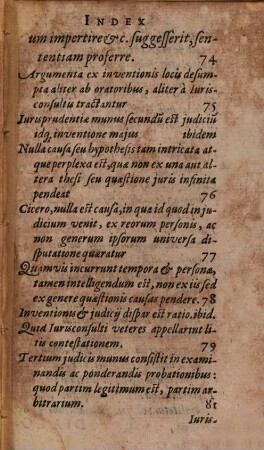 INDEX
um impertire &c. suggesserit, sen-
tentiam proferre. 74
Argumenta ex inventionis locis desum-
pta aliter ab oratoribus, aliter à Iuris-
consultis tractantur 75
Iurisprudentiæ munus secundū est judiciū
idq; inventione majus ibidem
Nulla causa seu hypothesis tam intricata at
que perplexa est, quæ non ex una aut al-
tera thesi seu quæstione juris infinita
pendeat 76
Cicero, nulla est causa, in qua id quod in ju-
dicium venit, ex reorum personis, ac
non generum ipsorum universa di-
sputatione quæratur 77
Quamvis incurrunt tempora & personæ,
tamen intelligendum est, non ex iis sed
ex genere quæstionis causas pendere. 78
Inventionis & judicij dispar est ratio. ibid.
Quid Iurisconsulti veteres appellarint li-
tis contestationem. 79
Tertium judicis munus consistit in exami-
nandis ac ponderandis probationibus:
quod partim legitimum est, partim ar-
bitrarium. 81
Iuris-